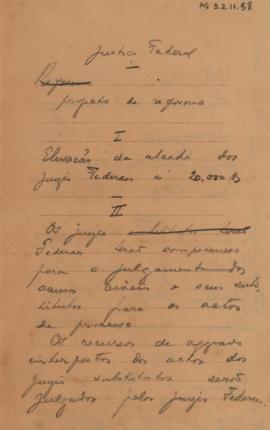 AG 3.2.11.58
Justiça Federal
Reforma
projecto de reforma
I
Elevação da alçada dos
Juizes Federaes a 20.000$
II
Os juizes substitutos
Federaes terão competencia
para o julgamento dos
causas civeis e seus subs-
titutos para os actos
de processo.
Os recursos de aggravo
interpostos dos actos dos
Juizes substitutos serão
Julgados pelos Juizes Federaes